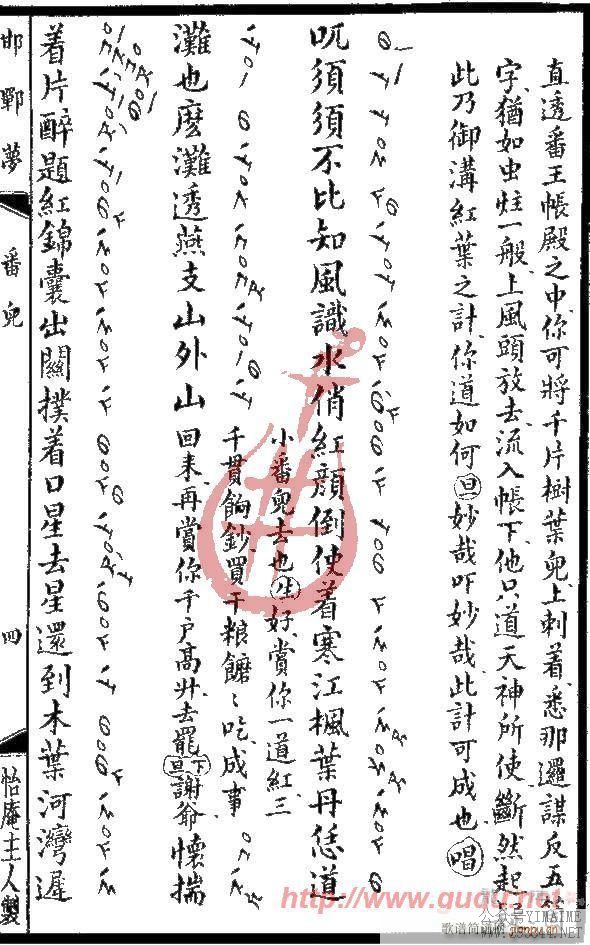 直透番王帳殿之中你可將千片樹葉兒上刺着悉那邏謀反五
字猶如虫蛀一般上風頭放去流入帳下他只道天神所使斷然起
此乃御溝紅葉之計你道如何旦妙哉吓妙哉此計可成也唱
須須不比知風識水俏紅顔倒使着寒江楓葉丹恁道
小番兒去也生好賞你一道紅三
千貫餉鈔買干粮饝〻吃成事
灘也麽灘透燕支山外山回来再賞你千户高升去罷旦下謝爺懷揣
着片醉題紅錦囊出關撲着口星去星還到木葉河灣遲
邯鄲夢
番兒
四
怡庵主人製
http://www.guqu.net